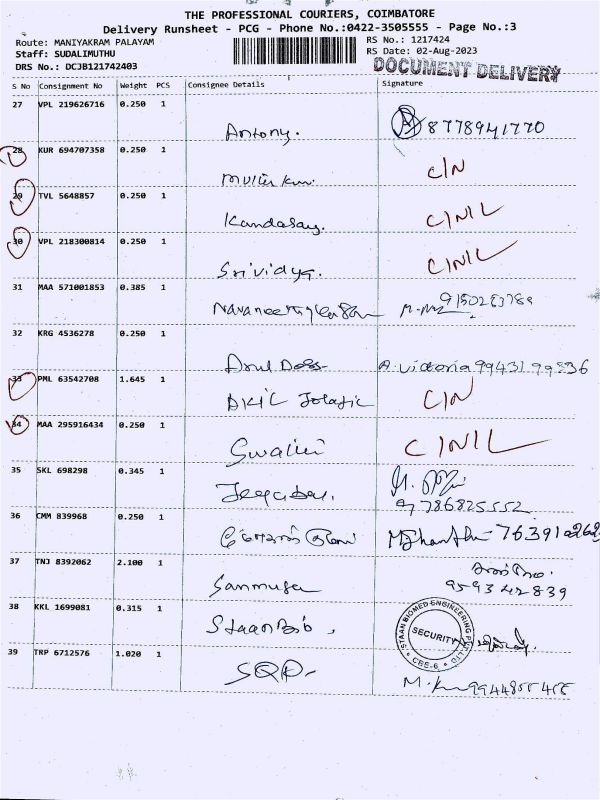 THE PROFESSIONAL COURIERS, COIMBATORE
Delivery Runsheet - PCG - Phone No.:0422-3505555 - Page No.:3
Route: MANIYAKRAM PALAYAM
RS No.: 1217424
Staff: SUDALIMUTHU
RS Date: 02-Aug-2023
DRS No.: DCJB121742403
DOCUMENT DELIVERY
S No Consignment No Weight PCS Consignee Details Signature
27 VPL 219626716 0.250 1
Antony. 8778941770
28 KUR 694707358 0.250 1
CIN
29 TVL 5648857 0.250 1
Kandasay. CINIL
30 VPL 218300814 0.250 1
Srividya. CINIL
31 MAA 571001853 0.385 1
9150283789
32 KRG 4536278 0.250 1
A. Victoria 9943199836
33 PML 63542708 1.645 1
CIN
34 MAA 295916434 0.250 1
CINIL
35 SKL 698298 0.345 1
9786825552
36 CMM 839968 0.250 1
37 TNJ 8392062 2.100 1
Sanmuga
959342839
38 KKL 1699081 0.315 1
STAAN BIOMED ENGINEERING
SECURITY
CBE-6
39 TRP 6712576 1.020 1